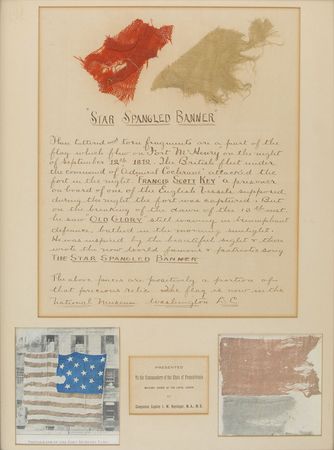 "STAR SPANGLED BANNER"
These tattered and torn fragments are a part of the
flag which flew on Fort McHenry on the night
of September 12th 1812. The British fleet under
the command of Admiral Cochrane attacked the
fort in the night. FRANCIS SCOTT KEY a prisoner
on board of one of the English Vessels supposed
during the night the fort was captured. But
on the breaking of the dawn of the 13th inst.
he saw "OLD GLORY" still waving in triumphant
defiance, bathed in the morning sunlight.
He was inspired by the beautiful sight & then
wrote the now world famous & patriotic song
THE STAR SPANGLED BANNER
The above pieces are positively a portion of
that precious relic. The flag is now in the
National Museum Washington D.C.
PRESENTED
To the Commandery of the State of Pennsylvania
MILITARY ORDER OF THE LOYAL LEGION
BY
Companion
PHOTOGRAPH OF THE FORT McHENRY FLAG